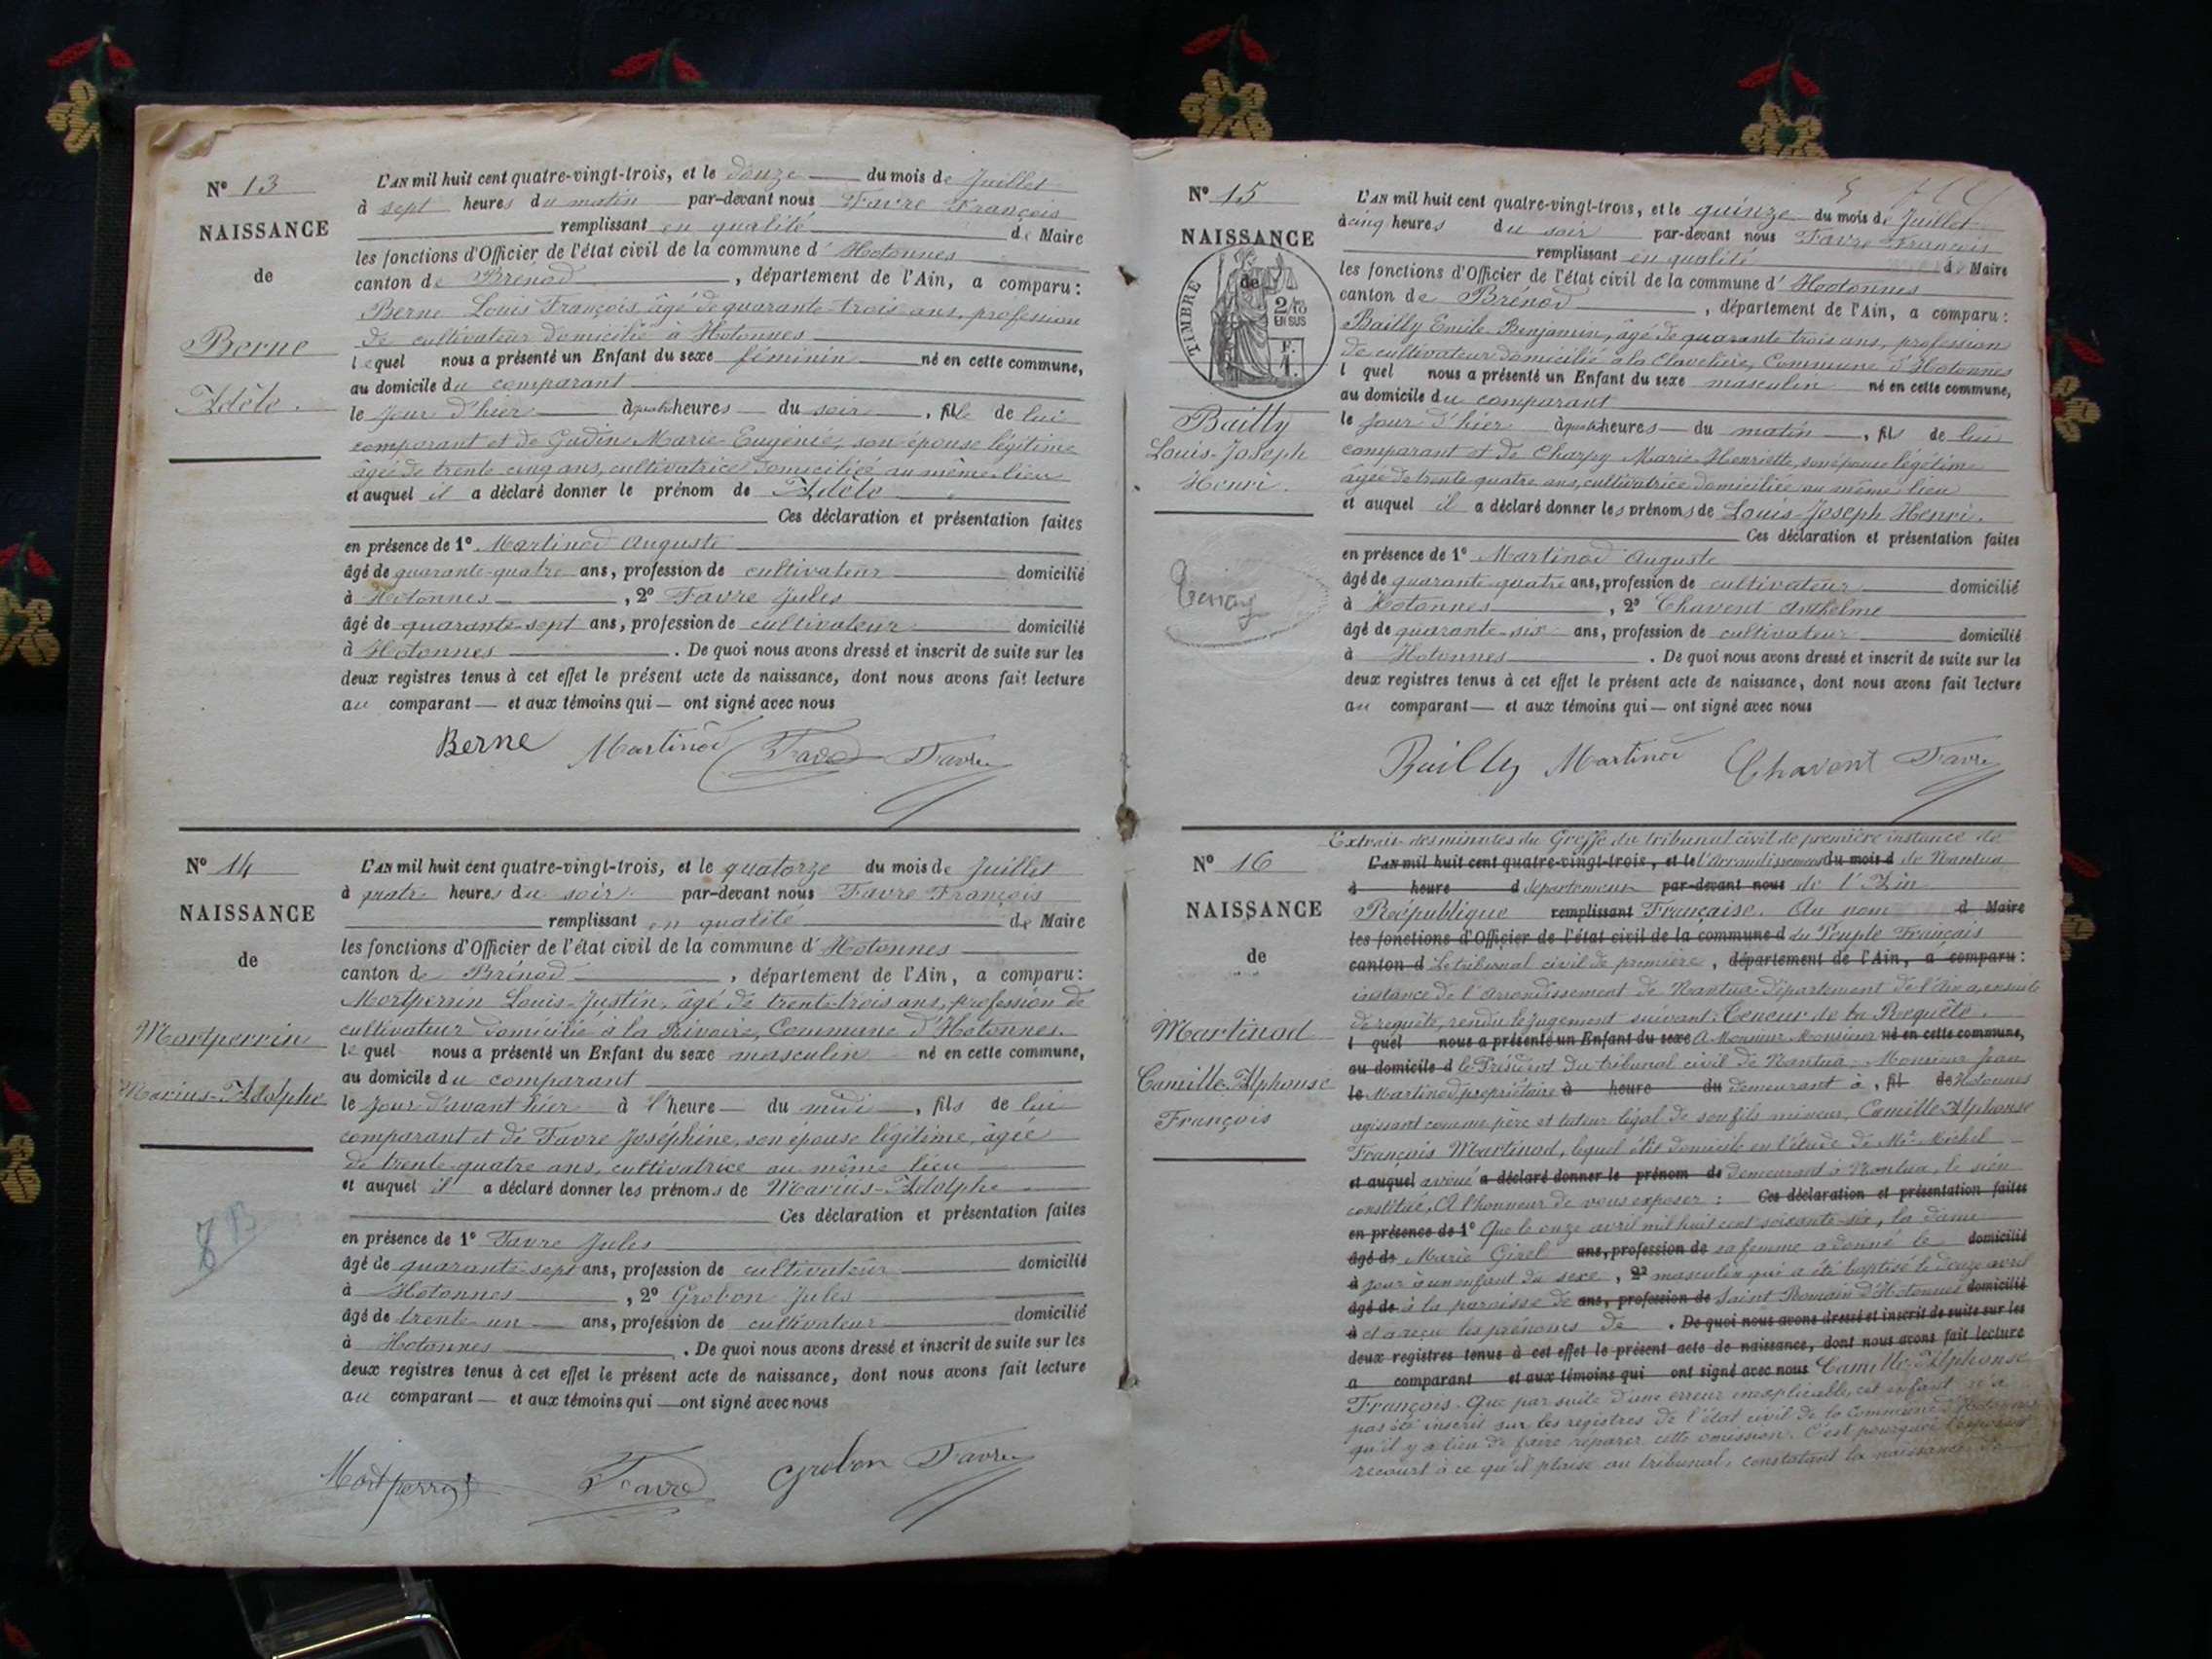 N° 13
NAISSANCE
de
Berne
Adèle.
L'AN mil huit cent quatre-vingt-trois, et le douze du mois de Juillet
à sept heures du matin par-devant nous Favre François
remplissant en qualité de Maire
les fonctions d'Officier de l'état civil de la commune d'Hotonnes
canton de Brenod, département de l'Ain, a comparu:
Berne Louis François, âgé de quarante-trois ans, profession
de cultivateur domicilié à Hotonnes
lequel nous a présenté un Enfant du sexe féminin né en cette commune,
au domicile du comparant
le jour d'hier à quatre heures du soir, fille de lui
comparant et de Gudin Marie-Eugénie, son épouse légitime
âgée de trente-cinq ans, cultivatrice domiciliée au même lieu
et auquel il a déclaré donner le prénom de Adèle
Ces déclaration et présentation faites
en présence de 1° Martinod Auguste
âgé de quarante-quatre ans, profession de cultivateur domicilié
à Hotonnes, 2° Favre Jules
âgé de quarante-sept ans, profession de cultivateur domicilié
à Hotonnes. De quoi nous avons dressé et inscrit de suite sur les
deux registres tenus à cet effet le présent acte de naissance, dont nous avons fait lecture
au comparant — et aux témoins qui — ont signé avec nous
Berne Martinod Favre Favre
N° 14
NAISSANCE
de
Mortperrin
Marius-Adolphe
L'AN mil huit cent quatre-vingt-trois, et le quatorze du mois de Juillet
à quatre heures du soir par-devant nous Favre François
remplissant en qualité de Maire
les fonctions d'Officier de l'état civil de la commune d'Hotonnes
canton de Brénod, département de l'Ain, a comparu:
Mortperrin Louis-Justin, âgé de trente-trois ans, profession de
cultivateur domicilié à la Rivoire, Commune d'Hotonnes.
lequel nous a présenté un Enfant du sexe masculin né en cette commune,
au domicile du comparant
le jour d'avant hier à l'heure du midi, fils de lui
comparant et de Favre Joséphine, son épouse légitime, âgée
de trente-quatre ans, cultivatrice au même lieu
et auquel il a déclaré donner les prénoms de Marius-Adolphe
Ces déclaration et présentation faites
en présence de 1° Favre Jules
âgé de quarante-sept ans, profession de cultivateur domicilié
à Hotonnes, 2° Grobon Jules
âgé de trente-un ans, profession de cultivateur domicilié
à Hotonnes. De quoi nous avons dressé et inscrit de suite sur les
deux registres tenus à cet effet le présent acte de naissance, dont nous avons fait lecture
au comparant — et aux témoins qui — ont signé avec nous
Mortperrin Favre Grobon Favre
N° 15
NAISSANCE
de
TIMBRE
2/10
EN SUS
Bailly
Louis-Joseph
Henri.
L'AN mil huit cent quatre-vingt-trois, et le quinze du mois de Juillet
à cinq heures du soir par-devant nous Favre François
remplissant en qualité d Maire
les fonctions d'Officier de l'état civil de la commune d'Hotonnes
canton de Brénod, département de l'Ain, a comparu:
Bailly Emile-Benjamin, âgé de quarante trois ans, profession
de cultivateur domicilié à la Clavelière, Commune d'Hotonnes
l quel nous a présenté un Enfant du sexe masculin né en cette commune,
au domicile du comparant
le jour d'hier à quatre heures du matin, fils de lui
comparant et de Charpy Marie-Henriette, son épouse légitime
âgée de trente quatre ans, cultivatrice domiciliée au même lieu
et auquel il a déclaré donner les prénoms de Louis-Joseph Henri.
Ces déclaration et présentation faites
en présence de 1° Martinod Auguste
âgé de quarante-quatre ans, profession de cultivateur domicilié
à Hotonnes, 2° Chavent Anthelme
âgé de quarante-six ans, profession de cultivateur domicilié
à Hotonnes. De quoi nous avons dressé et inscrit de suite sur les
deux registres tenus à cet effet le présent acte de naissance, dont nous avons fait lecture
au comparant — et aux témoins qui — ont signé avec nous
Bailly Martinod Chavent Favre
N° 16
NAISSANCE
de
Martinod
Camille-Alphonse
François
Extrait des minutes du Greffe du tribunal civil de première instance de
L'AN mil huit cent quatre-vingt-trois, et le l'Arrondissement du mois d de Nantua
à heure d département par-devant nous de l'Ain
République remplissant Française. Au nom d Maire
les fonctions d'Officier de l'état civil de la commune d du Peuple Français
canton d Le tribunal civil de première, département de l'Ain, a comparu:
instance de l'arrondissement de Nantua département de l'Ain a, ensuite
de requête, rendu le jugement suivant: Teneur de la Requête.
l quel nous a présenté un Enfant du sexe A Monsieur Monsieur né en cette commune,
au domicile d le Président du tribunal civil de Nantua. Monsieur Jean
le Martinod propriétaire à heure du demeurant à, fil de Hotonnes
agissant comme père et tuteur légal de son fils mineur, Camille Alphonse
François Martinod, lequel élit domicile en l'étude de Me Michel
et auquel avoué a déclaré donner le prénom de demeurant à Nantua, le sien
constitué, A l'honneur de vous exposer: Ces déclaration et présentation faites
en présence de 1° Que le onze avril mil huit cent soixante-six, la dame
âgé de Marie Girel ans, profession de sa femme a donné le domicilié
à jour à un enfant du sexe, 2° masculin qui a été baptisé le douze avril
âgé de à la paroisse de ans, profession de Saint Romain d'Hotonnes domicilié
à et a reçu les prénoms de. De quoi nous avons dressé et inscrit de suite sur les
deux registres tenus à cet effet le présent acte de naissance, dont nous avons fait lecture
a comparant et aux témoins qui ont signé avec nous Camille Alphonse
François. Que par suite d'une erreur inexplicable, cet enfant n'a
pas été inscrit sur les registres de l'état civil de la Commune d'Hotonnes
qu'il y a lieu de faire réparer cette omission. C'est pourquoi l'exposant
recourt à ce qu'il plaise au tribunal, constatant la naissance